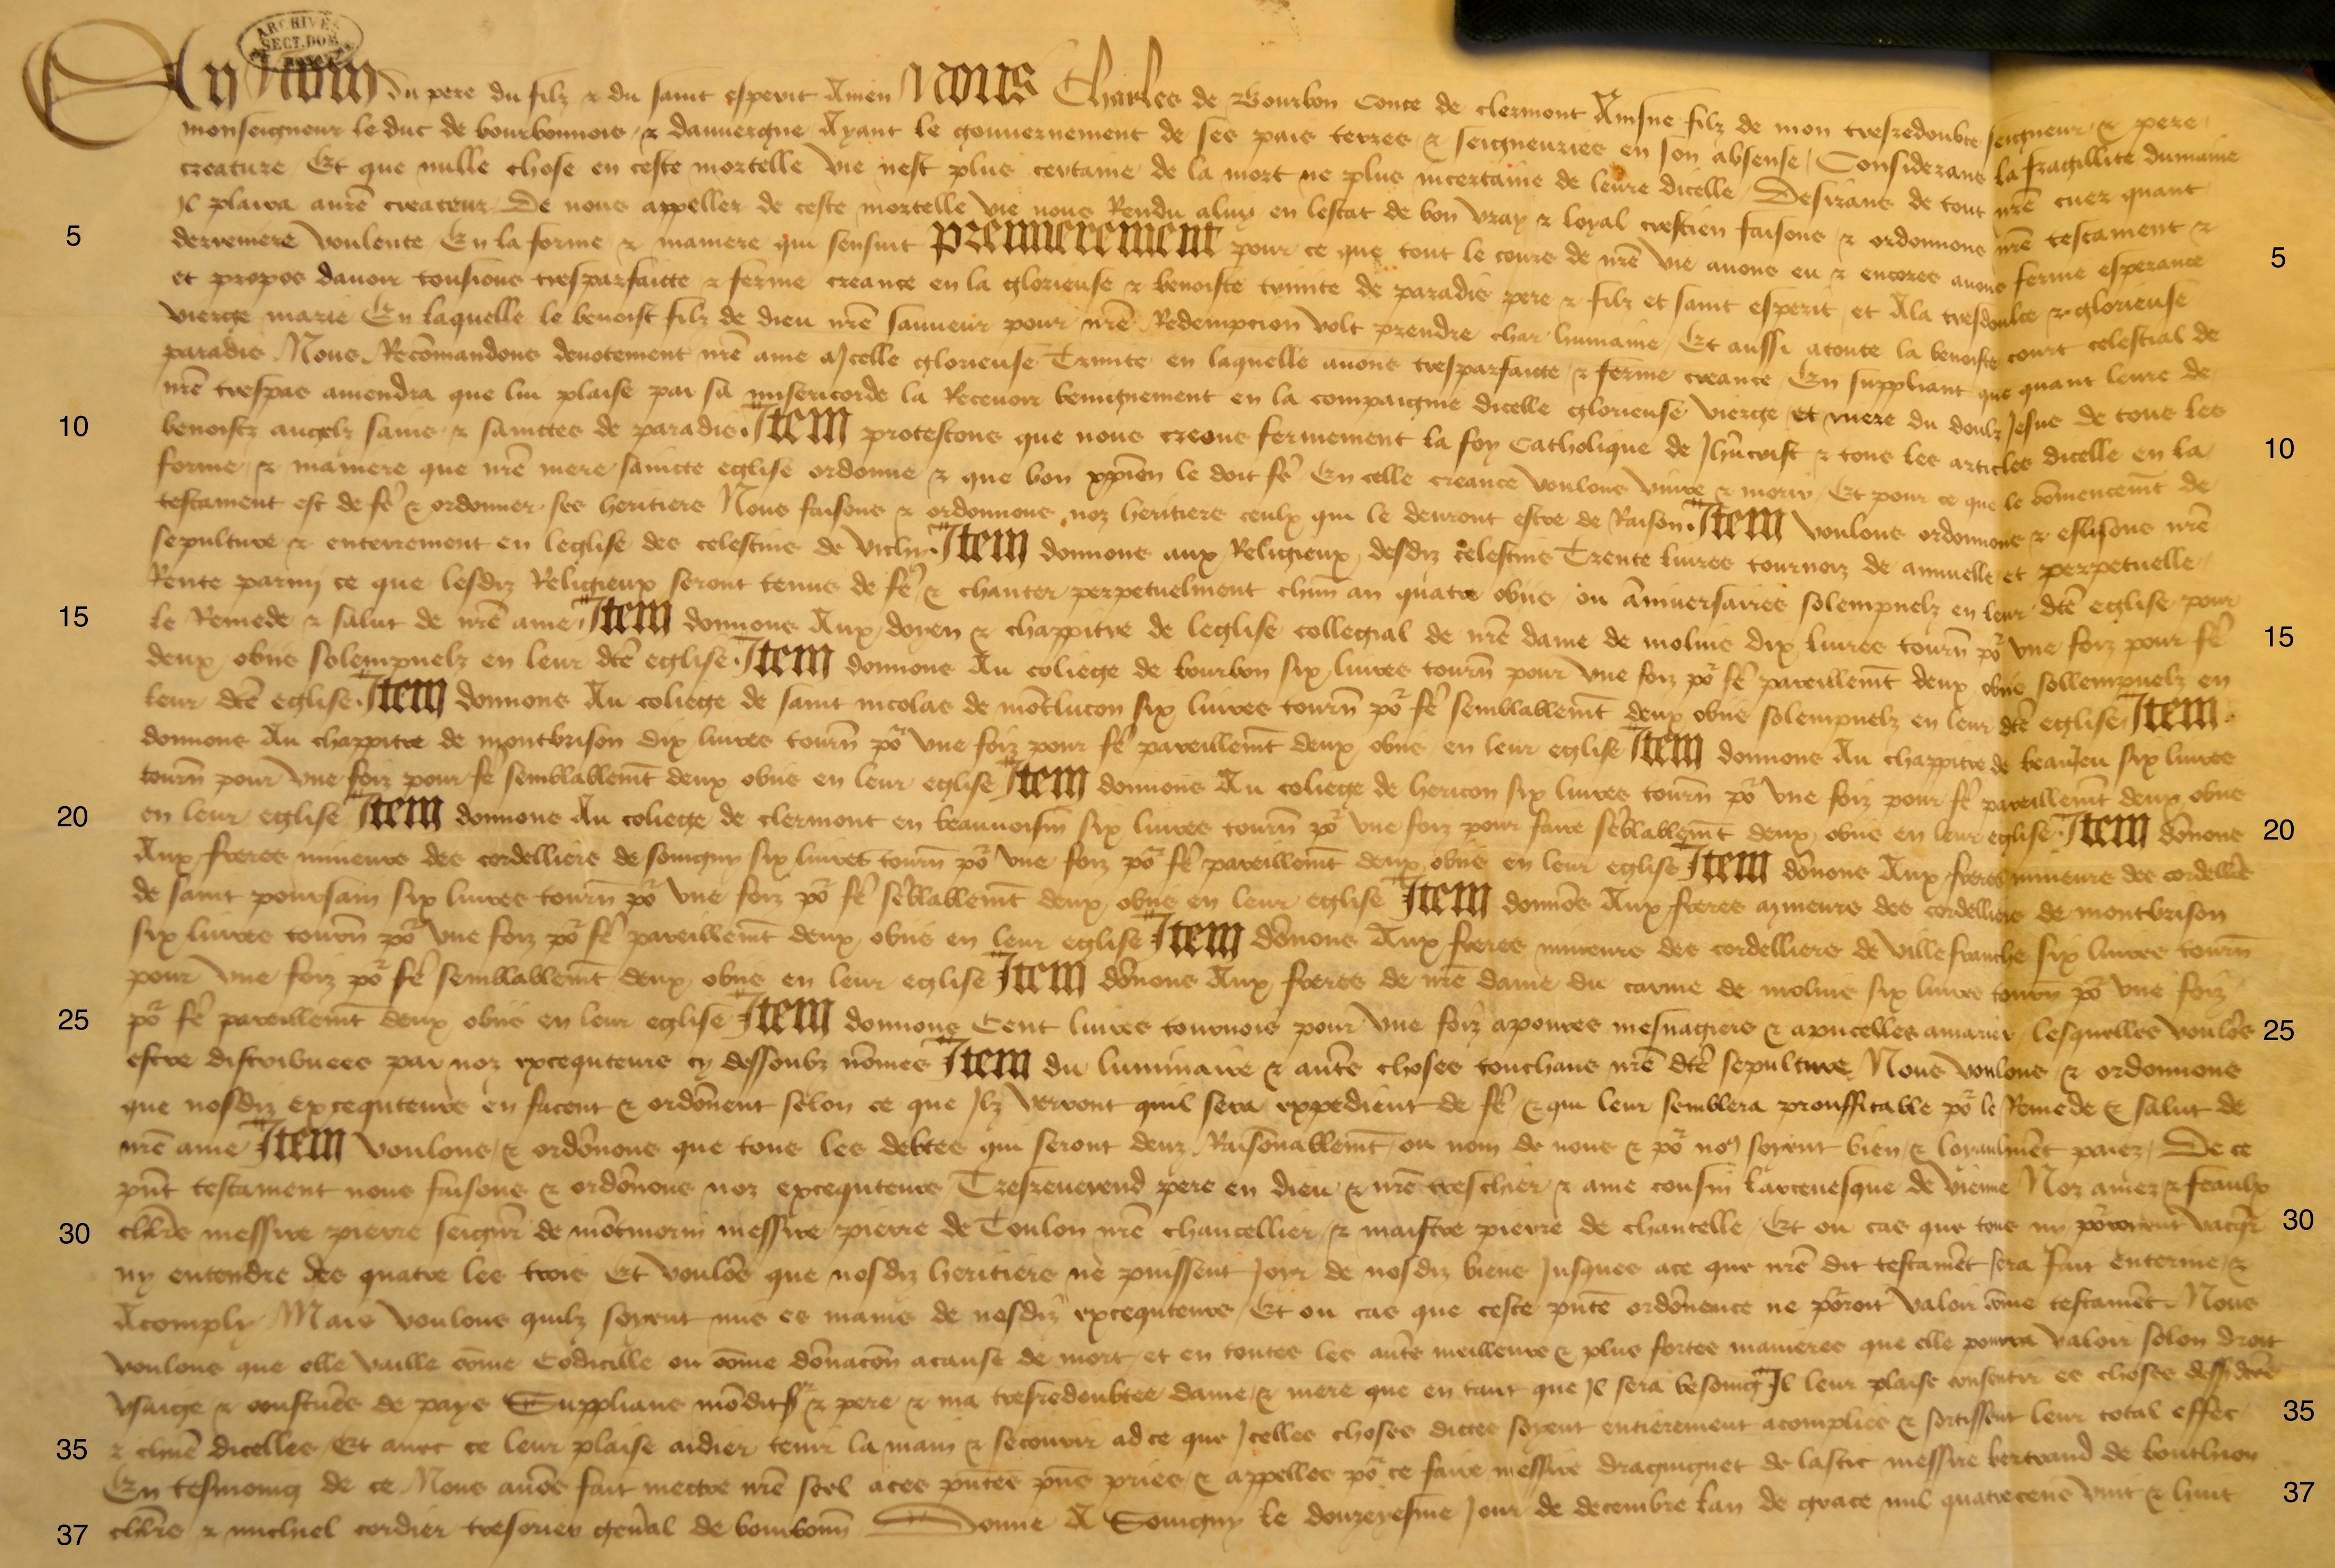 ARCHIVES
SECT. DOM.
Au nom du pere du filz & du saint esperit Amen Nous Charles de Bourbon Conte de clermont Ainsne filz de mon tresredoubte seigneur & pere
monseigneur le duc de bourbonnois & dauuergne Ayant le gouuernement de ses pais terres & seigneuries en son absense Considerans la fragillite dumaine
creature Et que nulle chose en ceste mortelle vie nest plus certaine de la mort ne plus incertaine de leure dicelle Desirans de tout nrē cuer quant
Il plaira a nrē createur De nous appeller de ceste mortelle vie nous Rendu a luy en lestat de bon vray & loyal crestien faisons & ordonnons nrē testament &
5 derreniere voulente En la forme & maniere qui sensuit Premierement pour ce que tout le cours de nrē vie auons eu & encores auons ferme esperance 5
et propos dauoir tousiours tresparfaicte & ferme creance en la glorieuse & benoiste trinite de paradis pere & filz et saint esperit et Ala tresdoulce & glorieuse
vierge marie En laquelle le benoist filz de dieu nrē sauueur pour nrē Redempcion volt prendre char humaine Et aussi atoute la benoiste court celestial de
paradis Nous Recōmandons deuotement nrē ame a Icelle glorieuse Trinite en laquelle auons tresparfaicte & ferme creance En suppliant que quant leure de
nrē trespas auiendra que lui plaise par sa misericorde la Receuoir benignement en la compaignie dicelle glorieuse vierge et mere du doulz Jesus de tous les
10 benoistz angelz sains & sainctes de paradis Item protestons que nous creons fermement la foy Catholique de Jhūcrist & tous les articles dicelle en la 10
forme & maniere que nrē mere saincte eglise ordonne & que bon xp̄ien le doit fē En celle creance voulons viure & morir Et pour ce que le cōmencemēt de
testament est de fē & ordonner ses heritiers Nous faisons & ordonnons noz heritiers ceulx qui le deuront estre de Raison Item voulons ordonnons & eslisons nrē
sepulture & enterrement en leglise des celestins de Vichy Item donnons aux Religieux desdiz celestins Trente liures tournoiz de annuelle et perpetuelle
Rente parmy ce que lesdiz Religieux seront tenus de fē & chanter perpetuelment chūn an quatre obiis ou anniuersaires solempnelz en leur dtē eglise pour
15 le Remede & salut de nrē ame Item donnons Aux doyen & chappitre de leglise collegial de nrē dame de molins dix liures tourn̄ po᷑ vne foiz pour fē 15
deux obiis solempnelz en leur dtē eglise Item donnons Au coliege de bourbon six liures tourn̄ pour vne foiz po᷑ fē pareillemt̄ deux obiis sollempnelz en
leur dtē eglise Item donnons Au coliege de saint nicolas de mōtlucon six liures tourn̄ po᷑ fē semblablemt̄ deux obiis solempnelz en leur dtē eglise Item
donnons Au chappitre de montbrison dix liures tourn̄ po᷑ vne foiz pour fē pareillemt̄ deux obiis en leur eglise Item donnons Au chappitre de beaujeu six liures
tourn̄ pour vne foiz pour fē semblablemt̄ deux obiis en leur eglise Item donnons Au coliege de hericon six liures tourn̄ po᷑ vne foiz pour fē pareillemt̄ deux obiis
20 en leur eglise Item donnons Au coliege de clermont en beauuoisin six liures tourn̄ po᷑ vne foiz pour faire sēblablemt̄ deux obiis en leur eglise Item dōnons 20
Aux freres mineurs des cordelliers de souigny six liures tourn̄ po᷑ vne foiz po᷑ fē pareillemt̄ deux obiis en leur eglise Item dōnons Aux freres mineurs des cordelliēs
de saint poursain six liures tourn̄ po᷑ vne foiz po᷑ fē sēblablemt̄ deux obiis en leur eglise Item donnōs Aux freres mineurs des cordelliers de montbrison
six liures tourn̄ po᷑ vne foiz po᷑ fē pareillemt̄ deux obiis en leur eglise Item dōnons Aux freres mineurs des cordelliers de ville franche six liures tourn̄
pour vne foiz po᷑ fē semblablemt̄ deux obiis en leur eglise Item dōnons Aux freres de nrē dame du carme de molins six liures tourn̄ po᷑ vne foiz
25 po᷑ fē pareillemt̄ deux obiis en leur eglise Item donnons Cent liures tournois pour vne foiz apoures mesnagiers & apucelles amarier lesquelles voulōs 25
estre distribuees par noz excequteurs cy dessoubz nōmes Item du luminaire & autrēs choses touchans nrē dtē sepulture Nous voulons & ordonnons
que nosdiz excequteurs en facent & ordōnent selon ce que Ilz verront quil sera expedient de fē & qui leur semblera prouffitable po᷑ le Remede & salut de
nrē ame Item voulons & ordōnons que tous les debtes qui seront deuz Raisōnablemt̄ ou nom de nous & po᷑ no9 soyent bien & loyaulmēt paiez De ce
pn̄t testament nous faisons & ordōnons noz excequteurs Tresreuerend pere en dieu & nrē treschier & ame cousin larceuesque de vienne Noz amez & feaulx
30 chlrs̄ messire pierre seignr̄ de mōtmorin messire pierre de Toulon nrē chancellier & maistre pierre de chantelle Et ou cas que tous ny po᷑roient vacq̄r 30
ny entendre des quatre les trois Et voulōs que nosdiz heritiers ne puissent Joyr de nosdiz biens Jusques ace que nrē dit testamēt sera fait enterine &
Acomply Mais voulons quilz soyent mis es mains de nosdiz excequteurs Et ou cas que ceste pn̄te ordōnence ne po᷑roit valoir cōme testamēt Nous
voulons que elle vaille cōme Codicille ou cōme dōnacōn acause de mort et en toutes les autrēs meilleurs & plus fortes manieres que elle pourra valoir selon droit
vsaige & coustūes de pays Supplians mōdit s᷑ & pere & ma tresredoubtee dame & mere que en tant que Il sera besoing Il leur plaise consentir es choses dessdctēs
35 & chūne dicelles Et auec ce leur plaise aidier tenir la main & secourir ad ce que Icelles choses dictes soyent entierement acomplies & sortissent leur total effec 35
En tesmoing de ce Nous auōs fait mectre nrē seel aces pn̄tes pn̄s pries & appelles po᷑ ce faire messire draguignet de lastic messire bertrand de
37 chlrs̄ & michiel cordier tresorier genāl de bourbonn̄ Donne A Souigny le douzeyesme Jour de decembre lan de grace mil quatrecens vint & huit 37